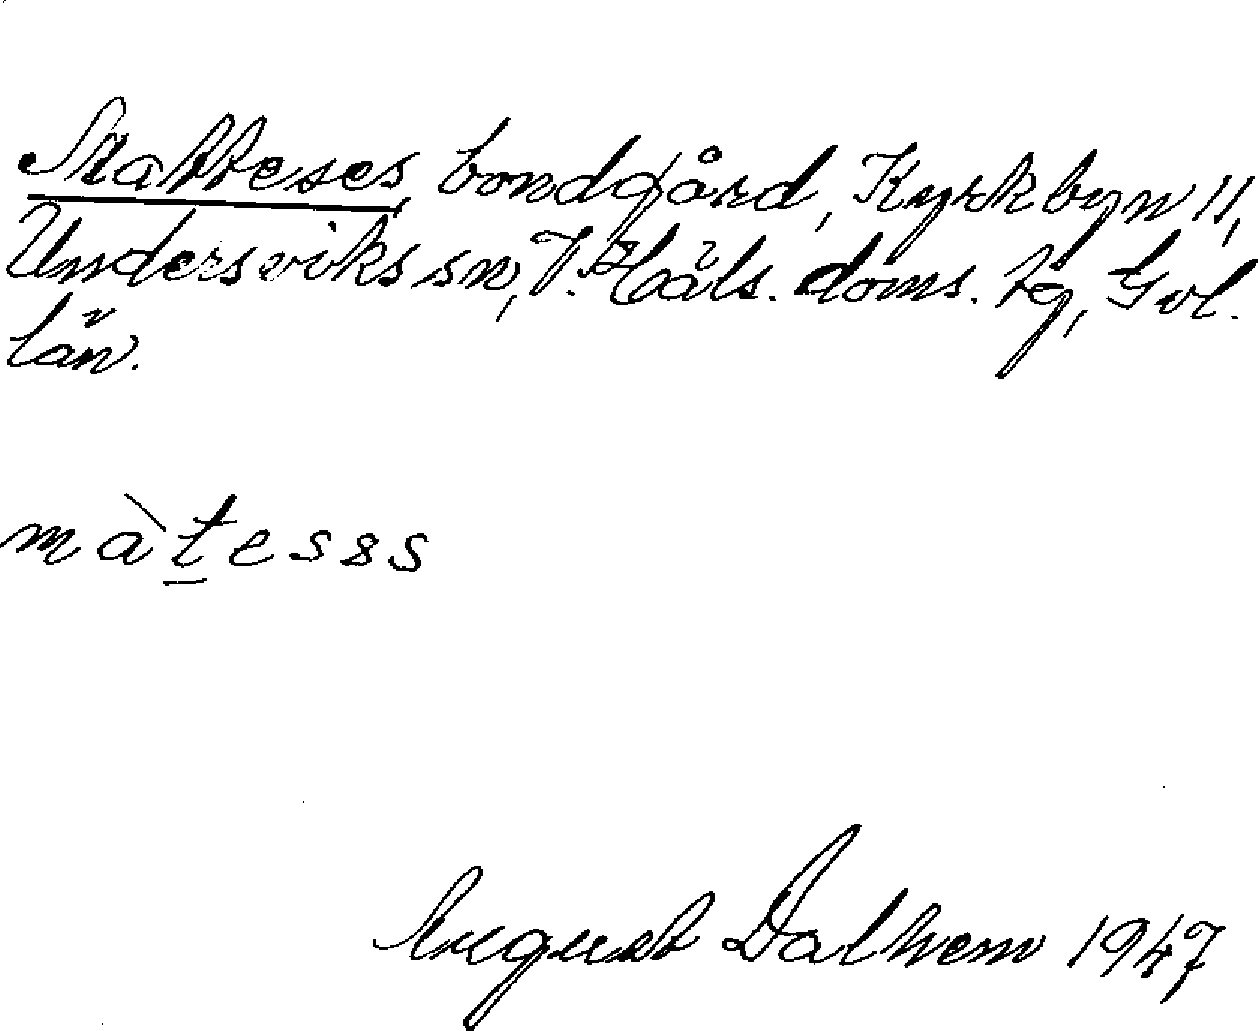 Matteses, bondgård, Kyrkbyn 11,
Undersviks sn, V. Häls. doms. tg, Gvl.
län.
màtesss
August Dalhem 1947